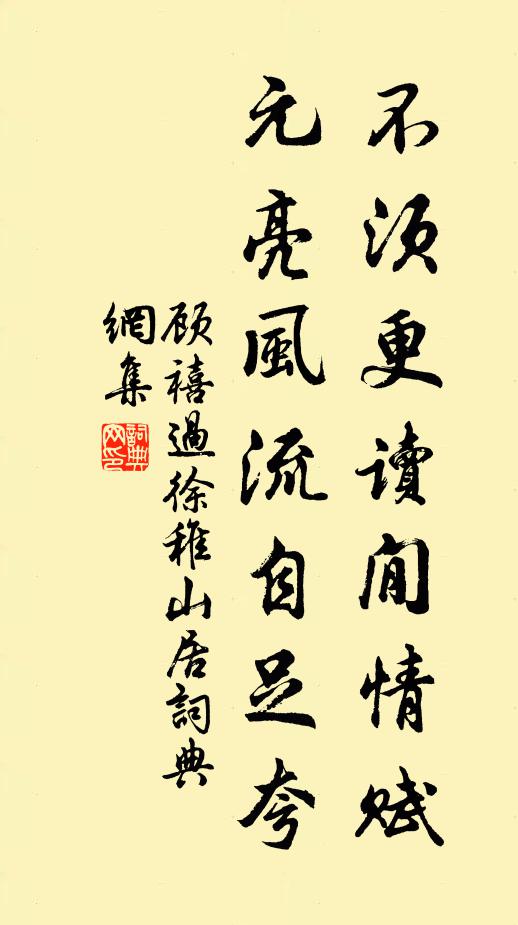 不須更讀閒情賦
元亮風流自足夸
顾禧過徐稚山居詞典
網集
詞典
网印